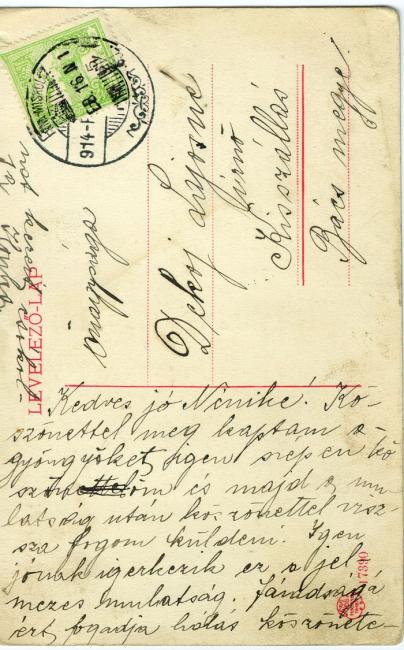 LEVELEZŐ-LAP
914 FEB 16
Dekoj Lajosné
úrnő
Kisszállás
Bács megye
Kedves jó Nénike! Kö-
szönettel meg kaptam a
gyöngyöket, igen szepen kö
szönöm és majd a mu-
latság utan köszönettel visz-
sza fogom küldeni. Igen
jónak igerkezik ez a jel
mezes mulatság. Fáradsagá
ért fogadja hálás köszönete-